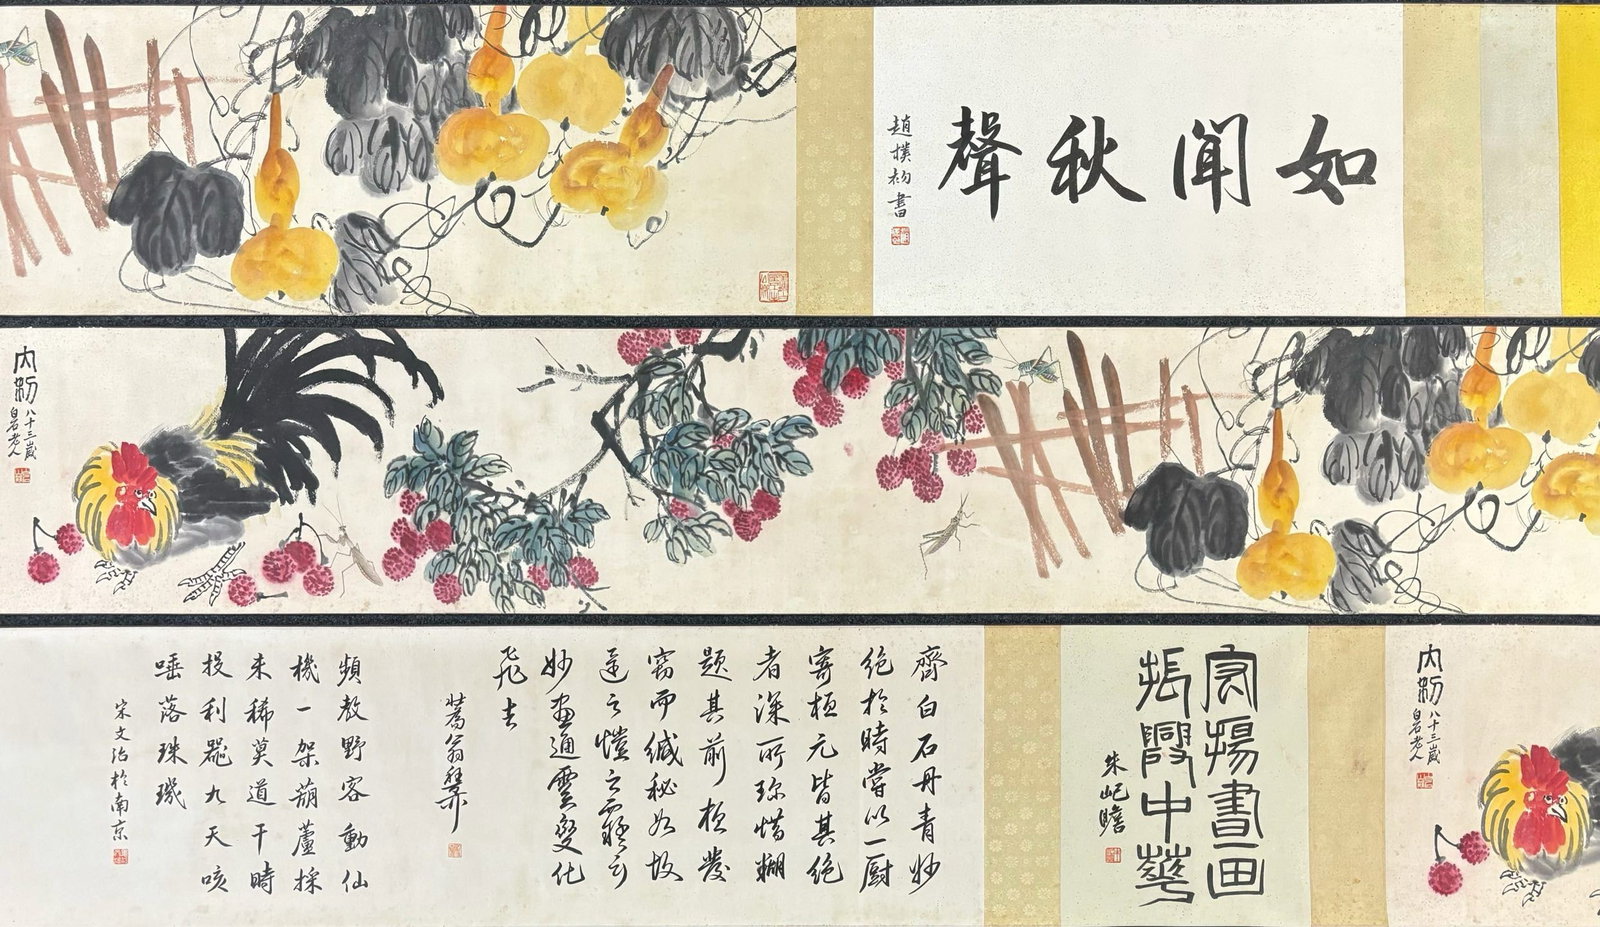 如聞秋聲
趙樸初書
大利
八十三歲
白石老人
宣揚書画
振興中華
朱屺瞻
大利
八十三歲
白石老人
齊白石丹青妙
絕於時嘗以一廚
寄桓元皆其絕
者深所珍惜糊
題其前桓發
竊而緘秘如故
還之愷之
妙畫通靈變化
飛去
蒼翁
頻敎野客動仙
機一架葫蘆採
未稀莫道干時
投利器九天咳
唾落珠璣
宋文治於南京